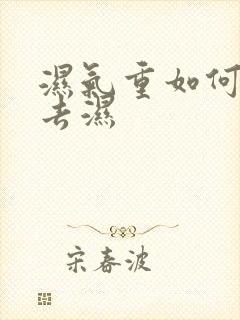 濕氣重如何
去濕
宋春波